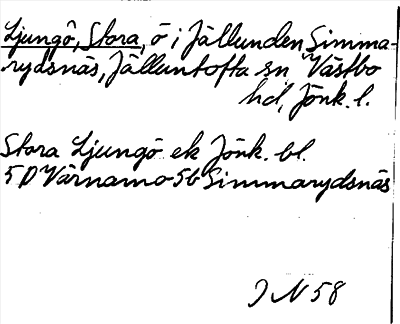 Ljungö, Stora, ö i Jällunden Simma-
rydsnäs, Jälluntofta sn Västbo
hd, Jönk. l.
Stora Ljungö ek Jönk. bl.
5 D Värnamo 5b Simmarydsnäs
J N 58